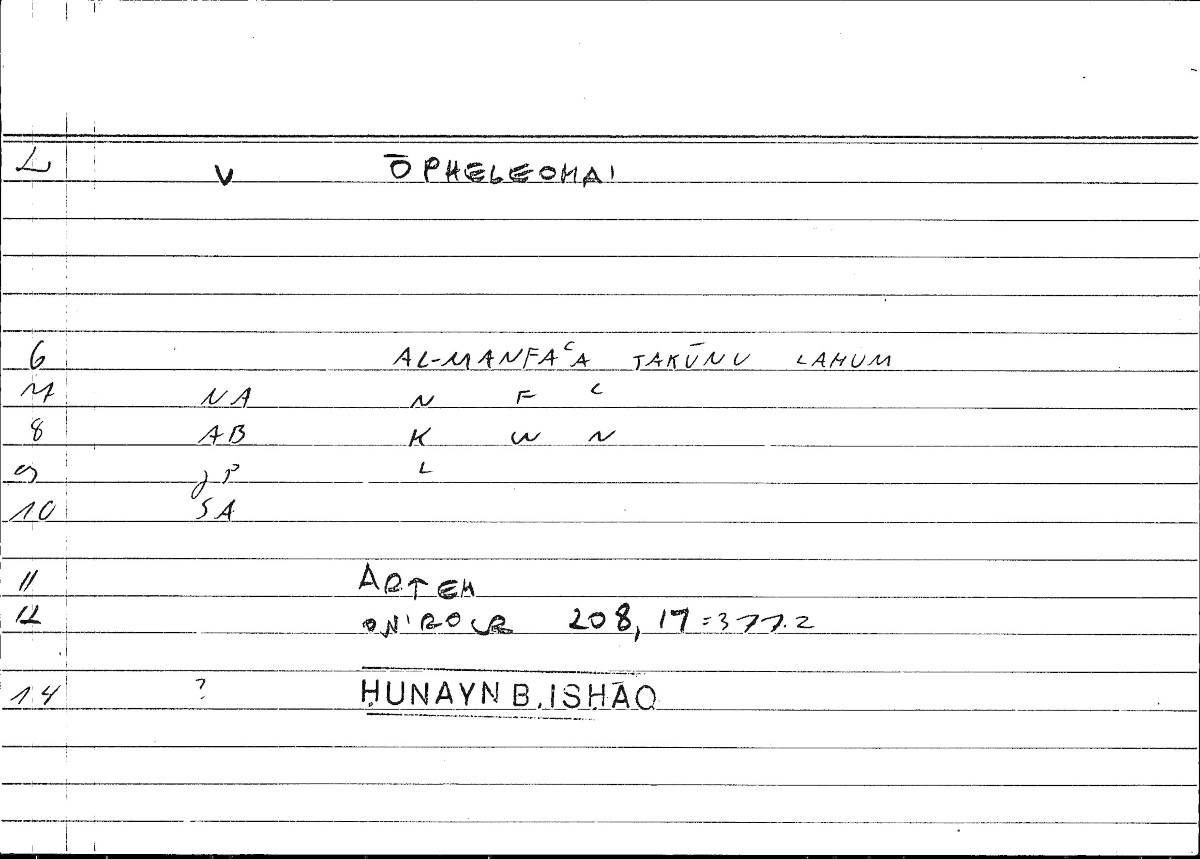 L V ŌPHELEOMAI
6 AL-MANFAʿA TAKŪNU LAHUM
7 NA N F ʿ
8 AB K W N
9 JP L
10 SA
11 ARTEM
12 ONIROCR 208, 17 = 377.2
14 ? ḤUNAYN B. ISḤĀQ